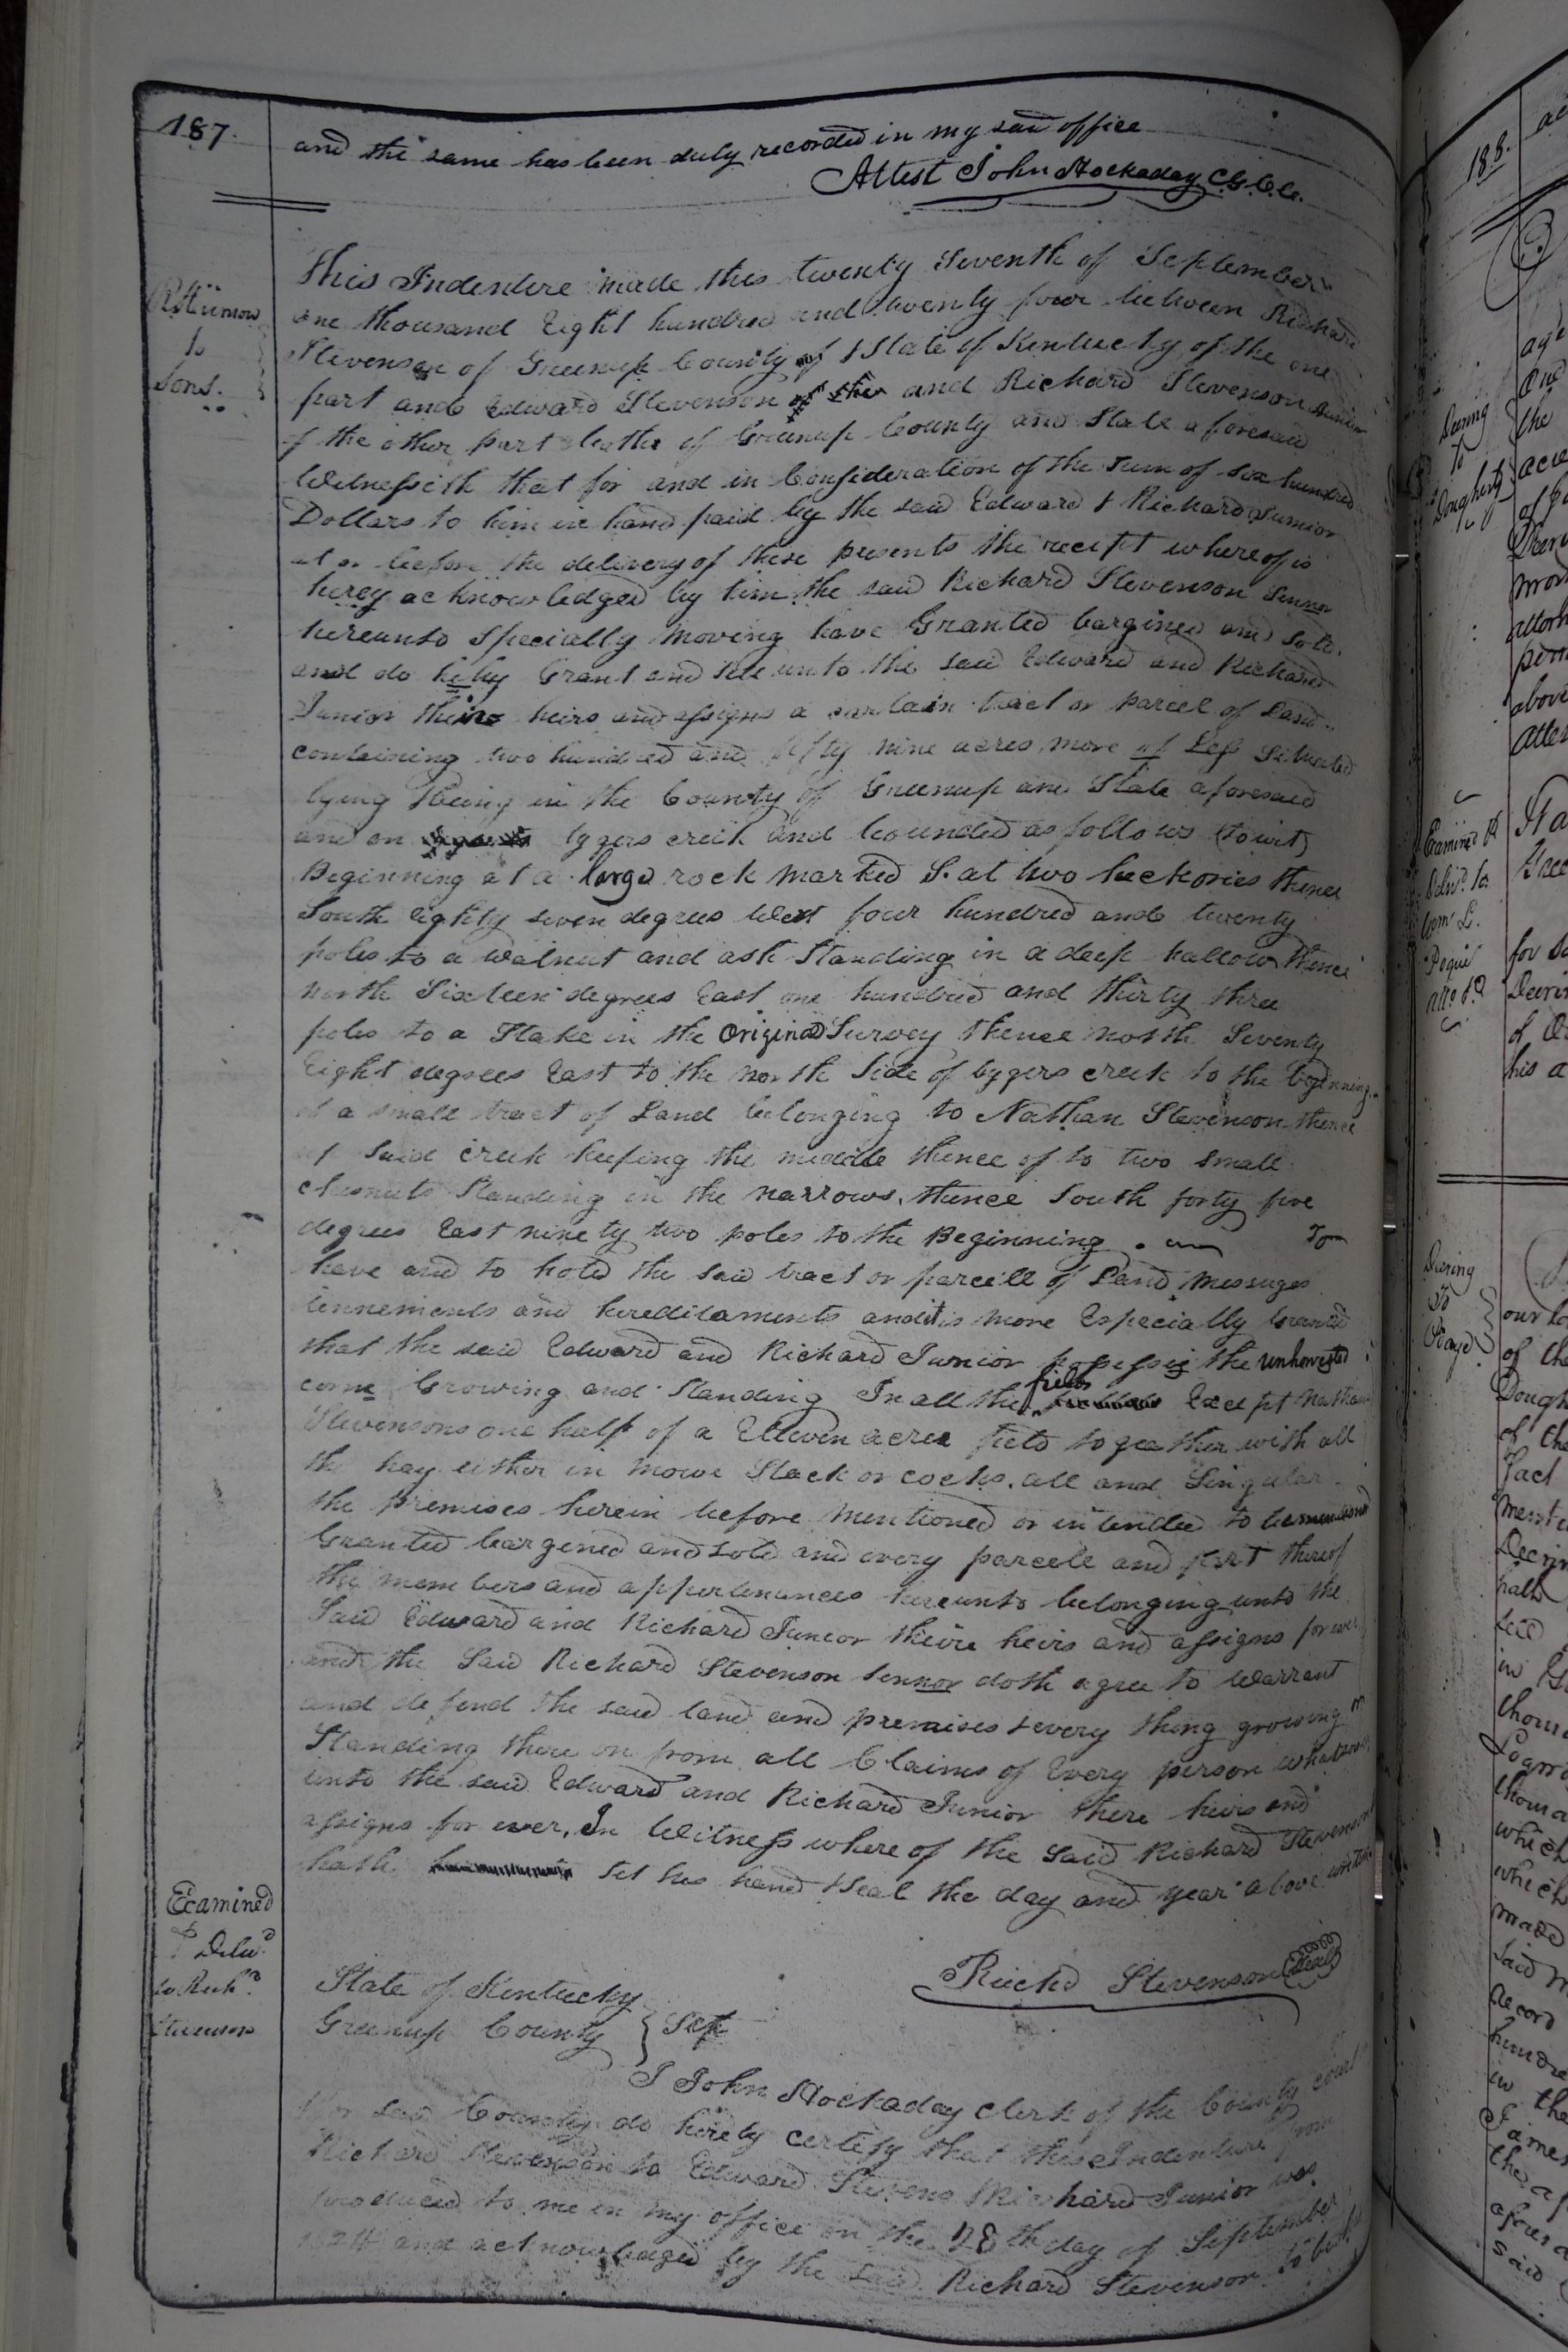 187.
and the same has been duly recorded in my said office
Attest John Hockaday C.G.C.C.
to
Sons.
This Indenture made this twenty Seventh of September
one thousand Eight hundred and twenty four between Richard
Stevenson of Greenup County & State of Kentucky of the one
part and Edward Stevenson and Richard Stevenson Junior
of the other part both of Greenup County and State aforesaid
Witnesseth that for and in Consideration of the sum of six hundred
Dollars to him in hand paid by the said Edward & Richard Junior
at or before the delivery of these presents the receipt whereof is
herey acknowledged by him the said Richard Stevenson Sennor
hereunto Specially moving have Granted bargined and sold
and do heby Grant and sell unto the said Edward and Richard
Junior their heirs and assigns a certain tract or parcel of Land
containing two hundred and fifty nine acres more of Less Situated
lying & being in the County of Greenup and State aforesaid
and on tygers creek and bounded as follows (towit)
Beginning at a large rock marked S. at two hickories thence
South Eighty seven degrees West four hundred and twenty
poles to a walnut and ash Standing in a deep hallow thence
north Sixteen degrees East one hundred and thirty three
poles to a Stake in the Original Survey thence north Seventy
Eight degrees East to the north Side of tygers creek to the beginning
of a small tract of Land belonging to Nathan Stevenson thence
said creek keeping the middle thence of to two small
chesnuts Standing in the narrows, thence South forty five
degrees East ninety two poles to the Beginning. To
have and to hold the said tract or parcell of Land Messuges
tennements and hereditaments and it is more Especially Granted
that the said Edward and Richard Junior the unharvested
corne Growing and Standing In all the fields Except Nathan
Stevensons one half of a Elleven acree field togeather with all
the hay either in mowe Stack or cocks, all and Singular
the premises herein before mentioned or intended to be
Granted bargined and sold and every parcele and part thereof
the members and appertenances hereunto belonging unto the
Said Edward and Richard Junior theire heirs and assigns for ever
and the Said Richard Stevenson Sennor doth agree to Warrant
and defend the said land and premises & every thing growing or
Standing there on from all Claims of Every person whatsoever
unto the said Edward and Richard Junior there heirs and
assigns for ever, In Witness where of the said Richard Stevenson
hath set his hand & Seal the day and year above written
Richd Stevenson (Seal)
Examined
& Delivd
to Richd
Stevenson
State of Kentucky
Greenup County } Sct
I John Hockaday clerk of the County court
for said County do hereby certify that this Indenture from
Richard Stevenson to Edward Stevens & Richard Junior was
produced to me in my office on the 28th day of September
1824 and acknowledged by the said Richard Stevenson to be
188.
Dering
to
Dougherty
Examined &
Delivd to
Dering
to